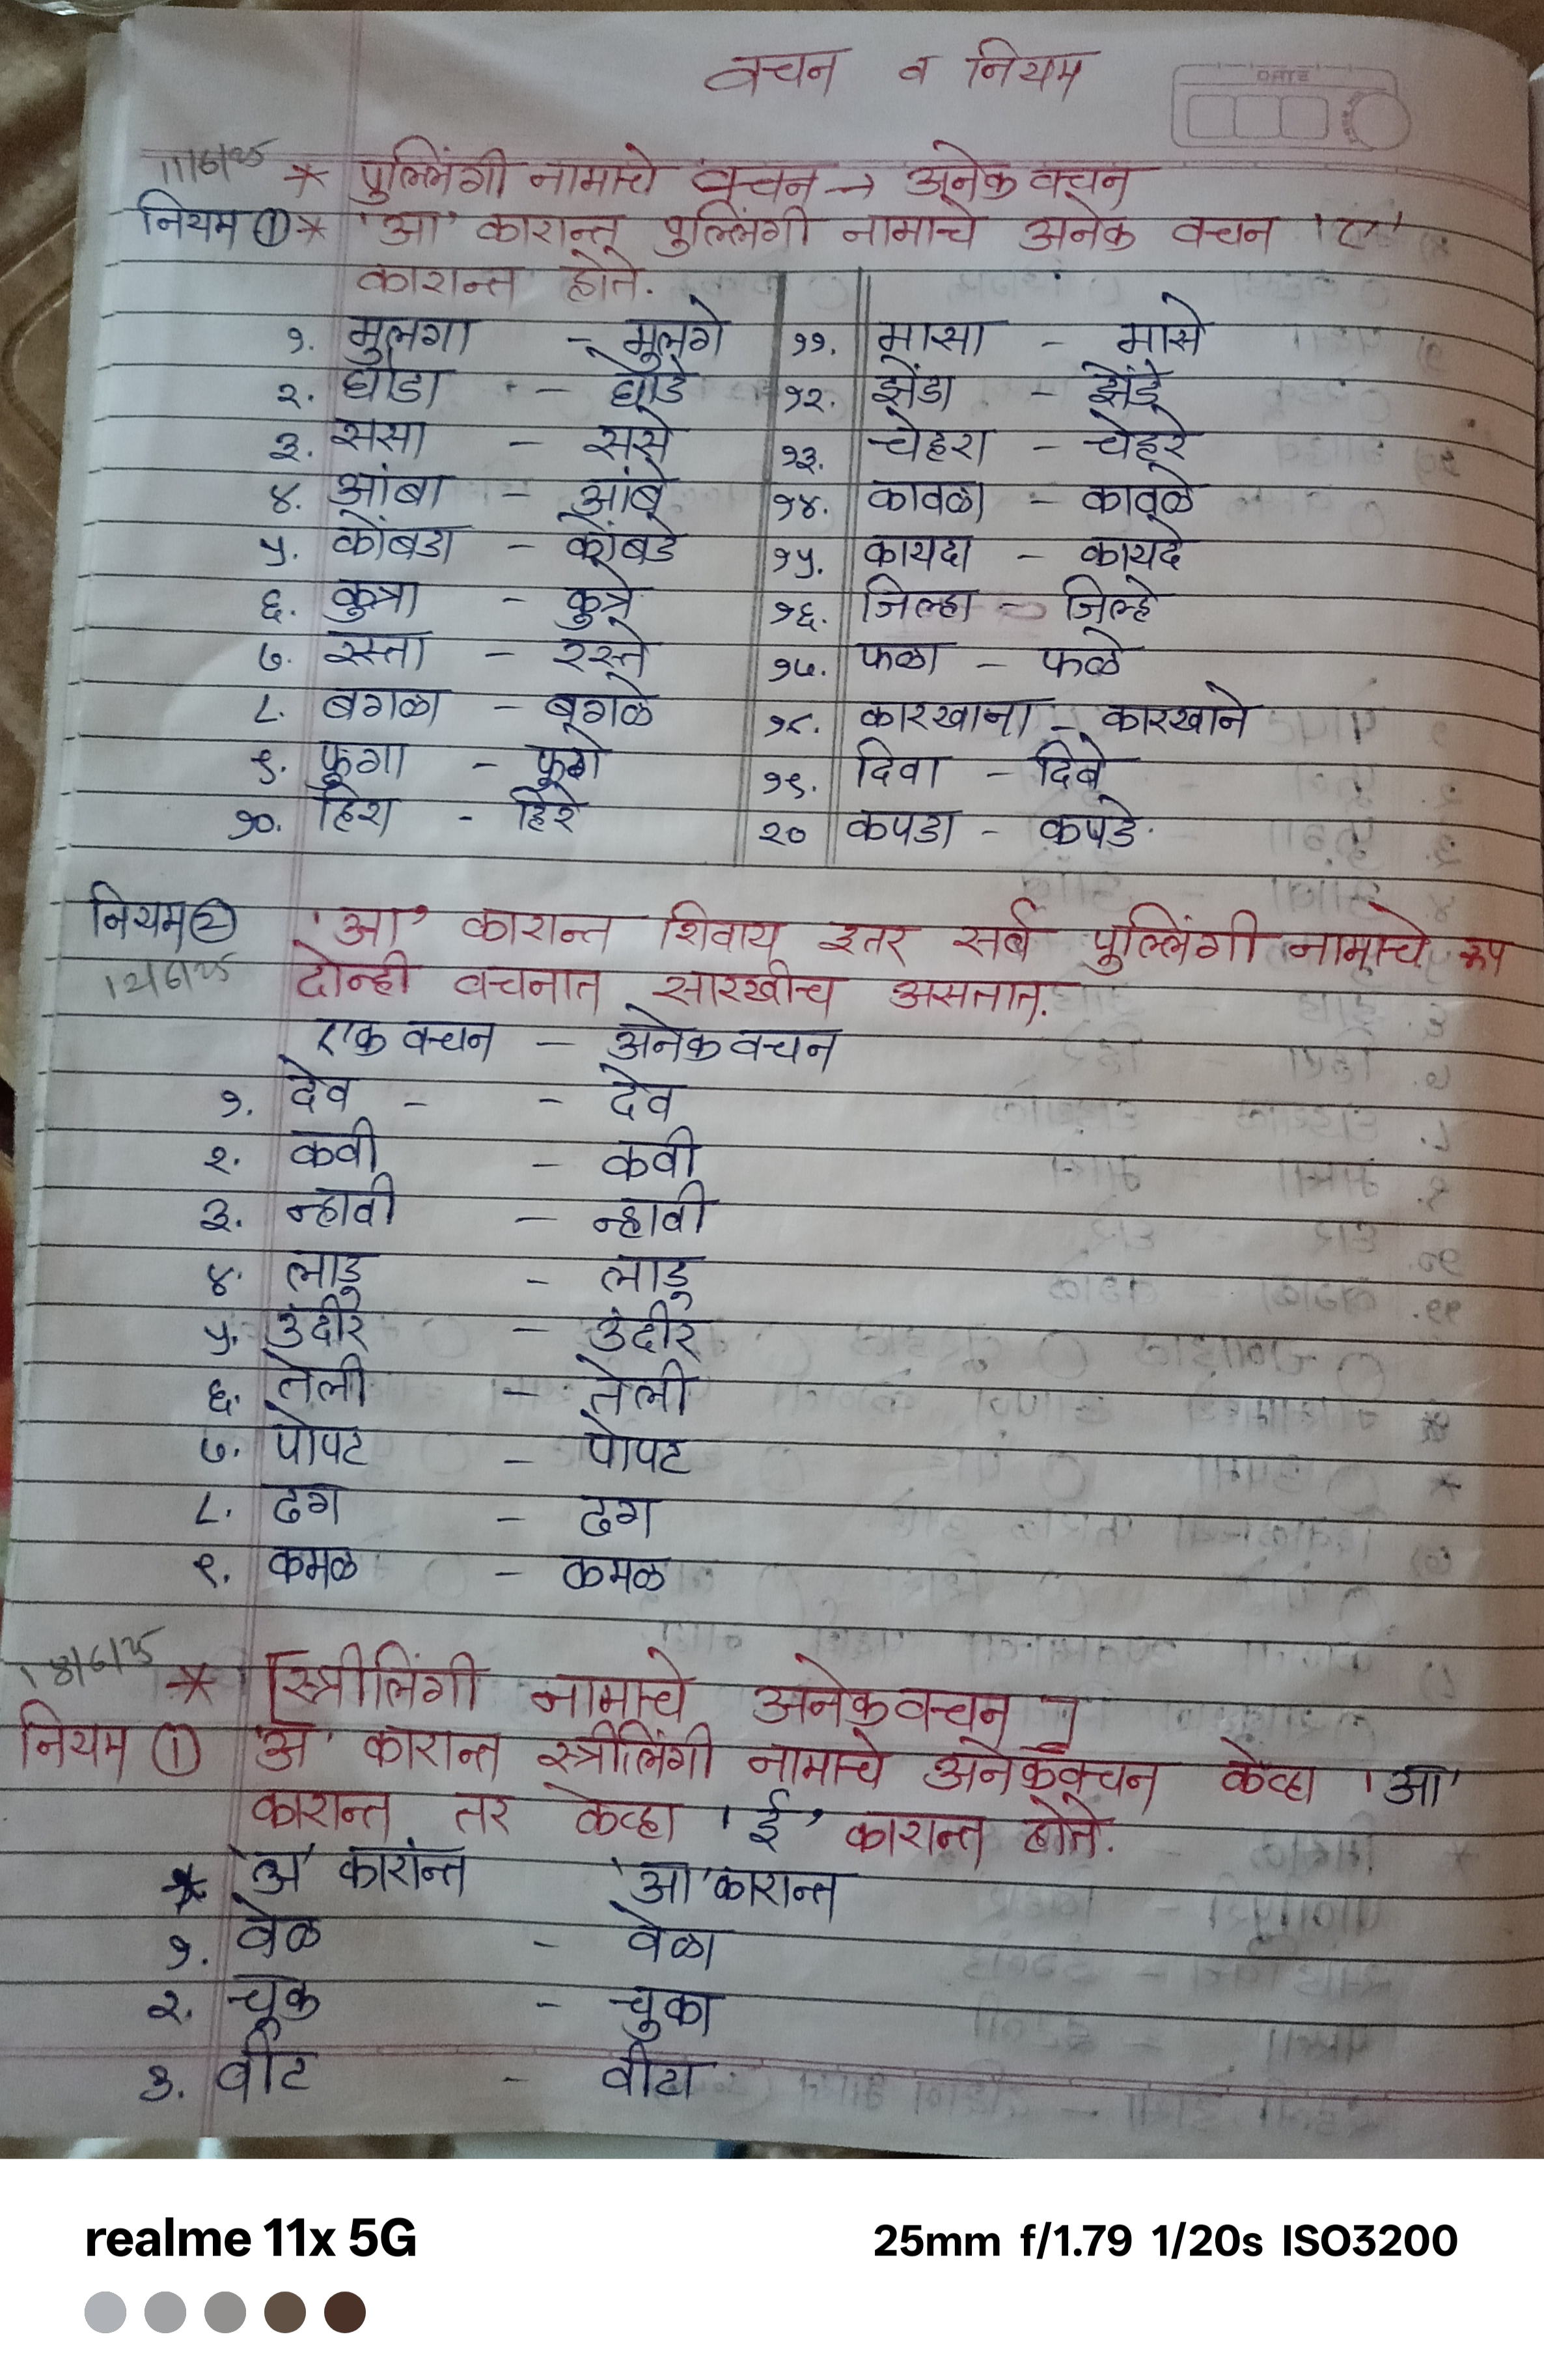 वचन व नियम
DATE
११/६/२५ * पुल्लिंगी नामाचे वचन → अनेक वचन
नियम ① * 'आ' कारान्त पुल्लिंगी नामाचे अनेक वचन 'ए'
कारान्त होते.
१. मुलगा - मुलगे ११. मासा - मासे
२. घोडा - घोडे १२. झेंडा - झेंडे
३. ससा - ससे १३. चेहरा - चेहरे
४. आंबा - आंबे १४. कावळा - कावळे
५. कोंबडा - कोंबडे १५. कायदा - कायदे
६. कुत्रा - कुत्रे १६. जिल्हा - जिल्हे
७. रस्ता - रस्ते १७. फळा - फळे
८. बगळा - बगळे १८. कारखाना - कारखाने
९. फुगा - फुगे १९. दिवा - दिवे
१०. हिरा - हिरे २० कपडा - कपडे.
नियम② 'आ' कारान्त शिवाय इतर सर्व पुल्लिंगी नामाचे रूप
दोन्ही वचनात सारखीच असतात.
एक वचन - अनेक वचन
१. देव - - देव
२. कवी - कवी
३. न्हावी - न्हावी
४. लाडु - लाडु
५. उंदीर - उंदीर
६. तेली - तेली
७. पोपट - पोपट
८. ढग - ढग
९. कमळ - कमळ
* [स्त्रीलिंगी नामाचे अनेकवचन]
नियम ① 'अ' कारान्त स्त्रीलिंगी नामाचे अनेकवचन केव्हा 'आ'
कारान्त तर केव्हा 'ई' कारान्त होते.
* 'अ' कारान्त 'आ' कारान्त
१. वेळ - वेळा
२. चूक - चुका
३. वीट - वीटा
realme 11x 5G 25mm f/1.79 1/20s ISO3200